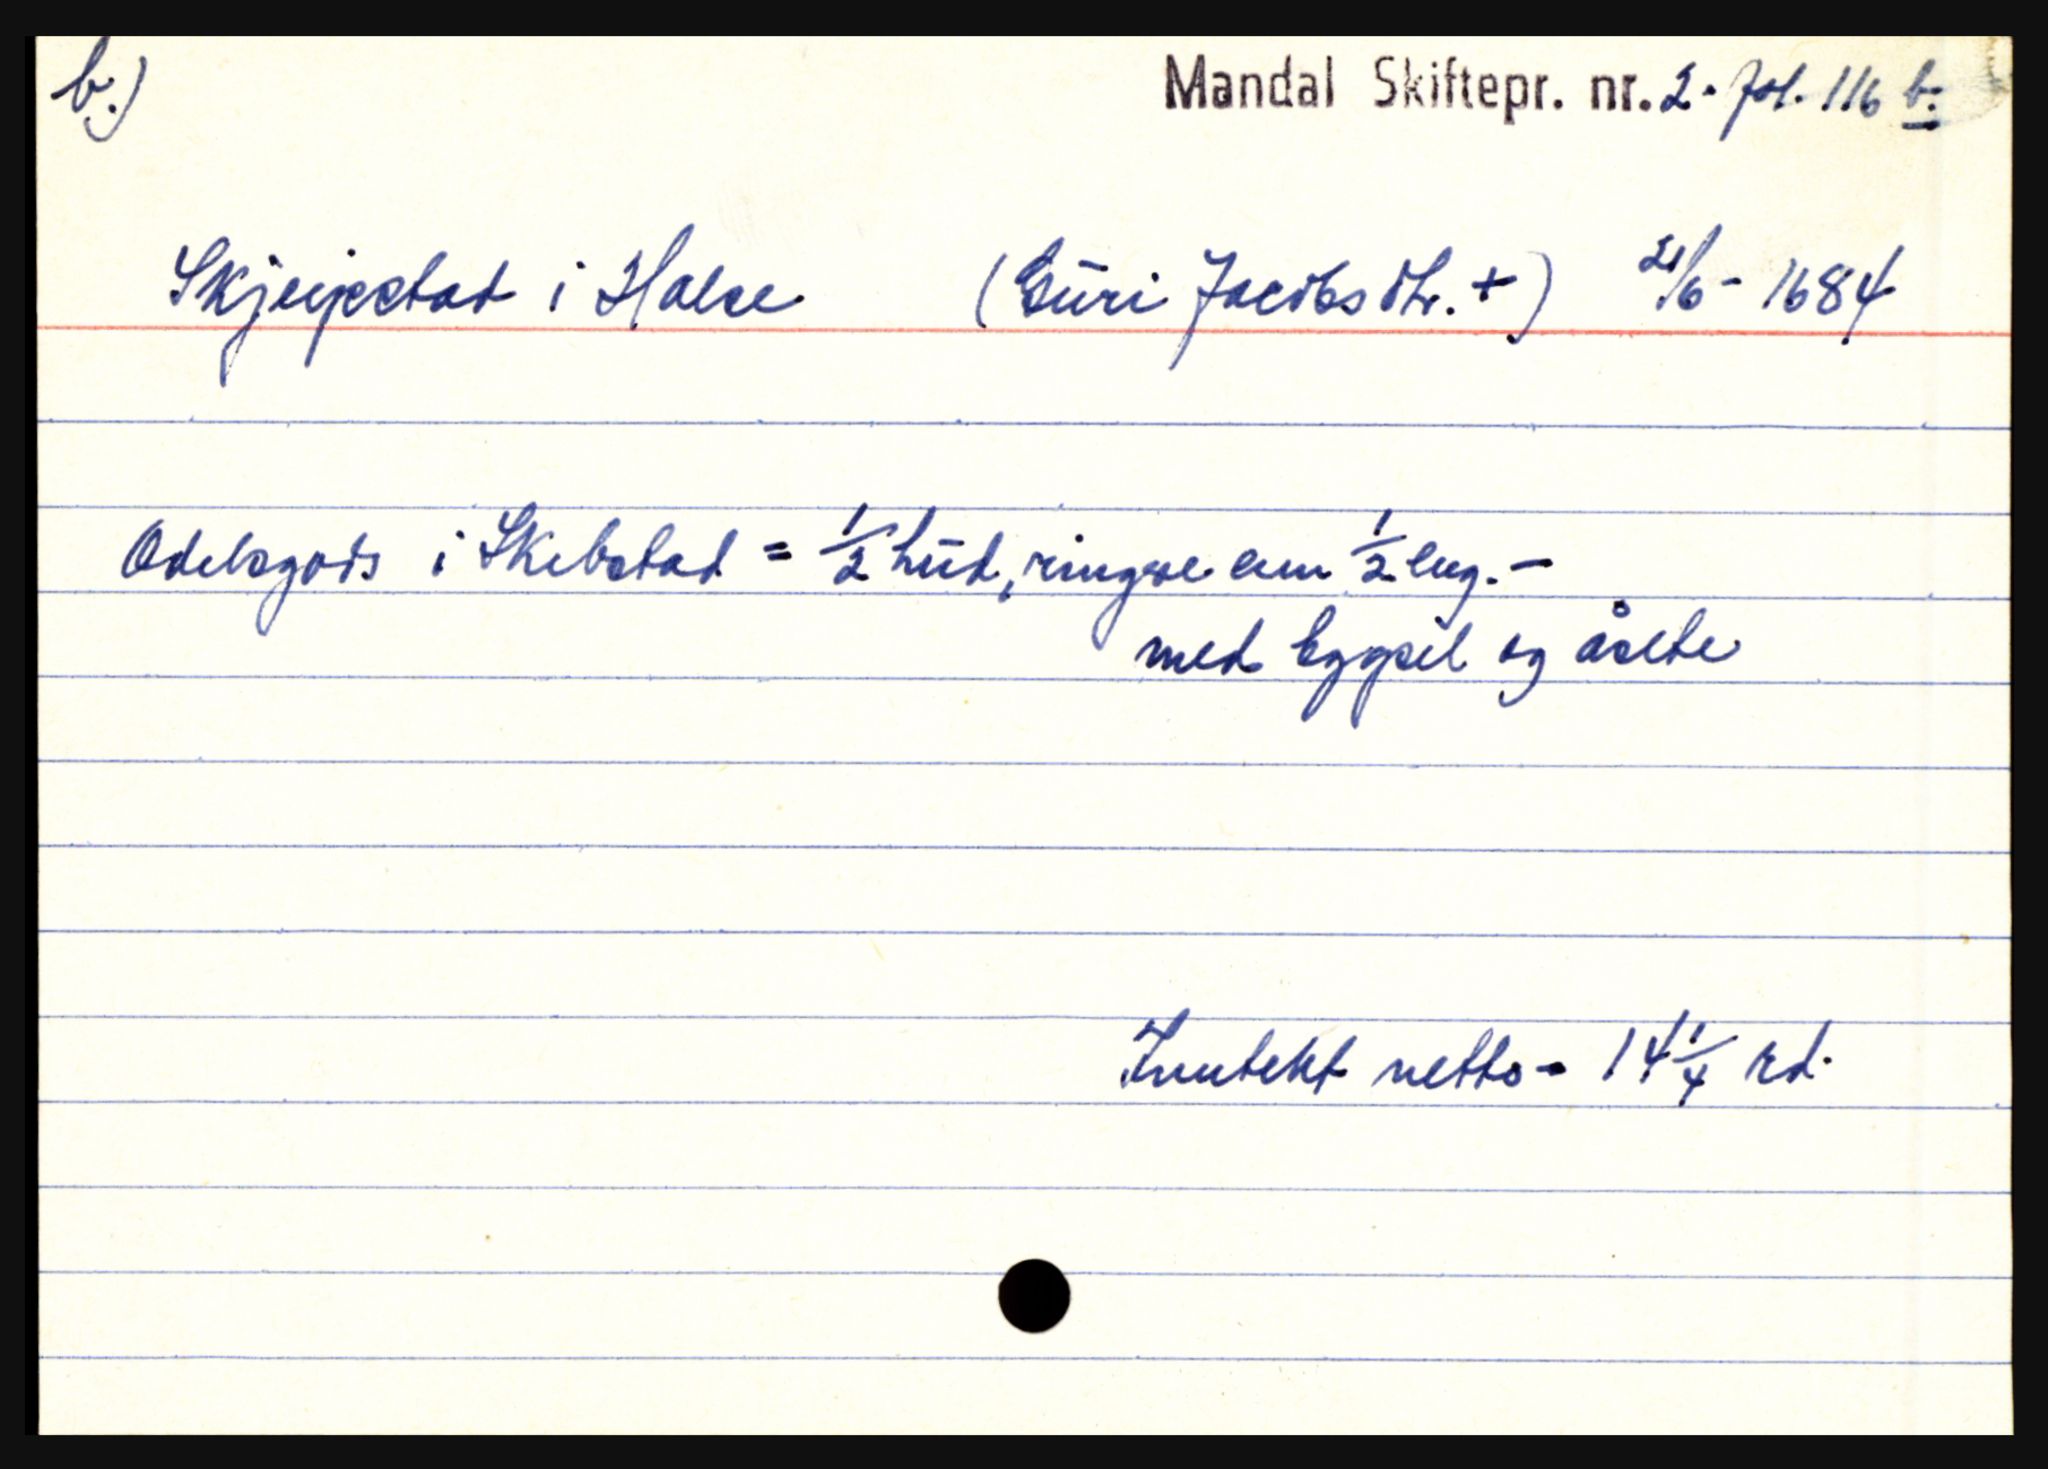 b.)
Mandal Skiftepr. nr. 2. fol. 116 b.
Skjeipstad i Halse (Guri Jacobsdtr. +) 21/6 - 1684
Odelsgods i Skibstad = 1/2 hud, ringere enn 1/2 eng. -
med bygsel og åsete
Inntekt netto - 14 1/4 rd.